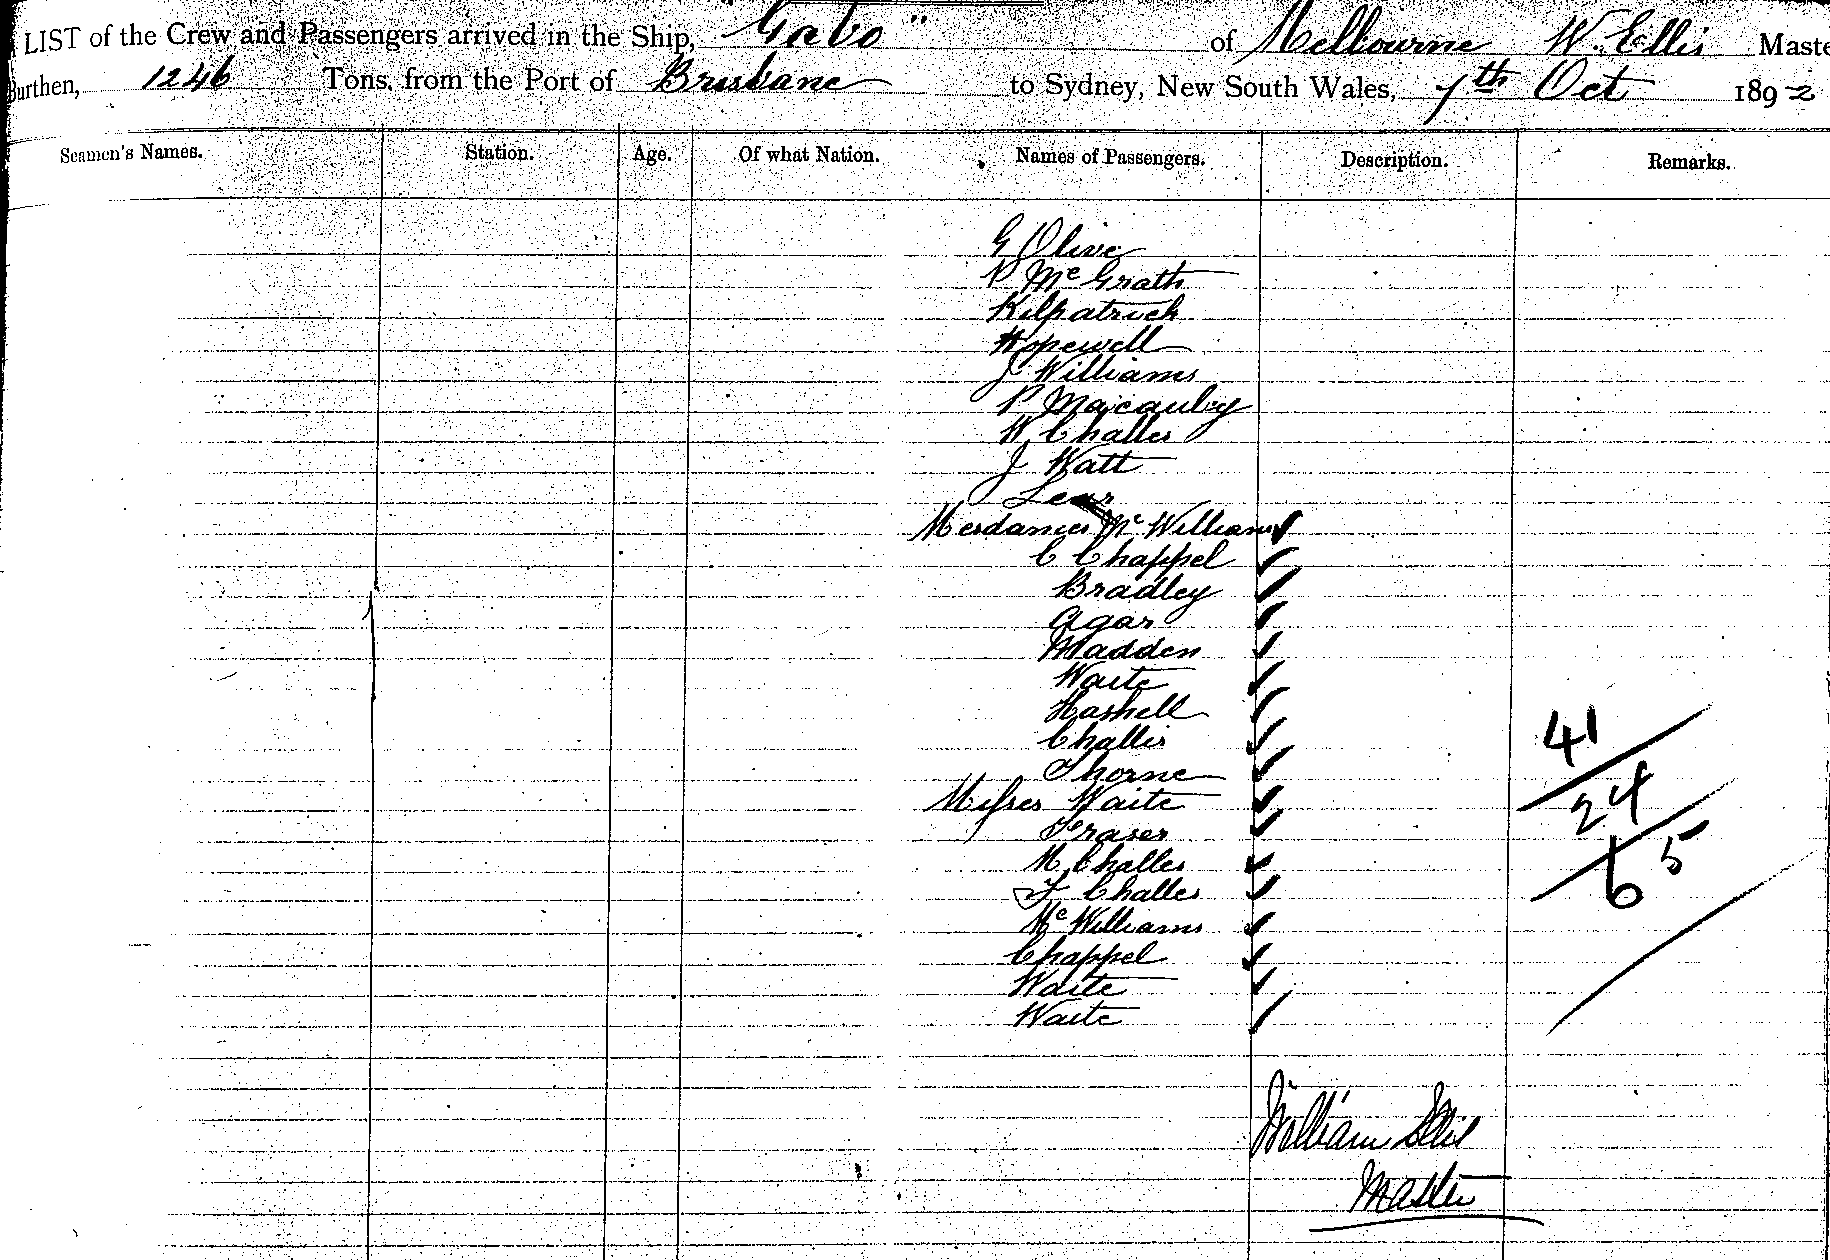 LIST of the Crew and Passengers arrived in the Ship, "Gabo" of Melbourne W. Ellis Maste
Burthen, 1246 Tons, from the Port of Brisbane to Sydney, New South Wales, 7th Oct 1892
Seamen's Names. Station. Age. Of what Nation. Names of Passengers. Description. Remarks.
G Olive
P McGrath
Kilpatrick
Hopewell
J Williams
P Macauley
W Challes
J Watt
Lear
Mesdames McWilliams
C Chappel
Bradley
Agar
Madden
Waite
Haskell
Challis
Thorne
Misses Waite
Fraser
M Challes
F Challes
McWilliams
Chappel
Waite
Waite
41
24
65
William Ellis
Master